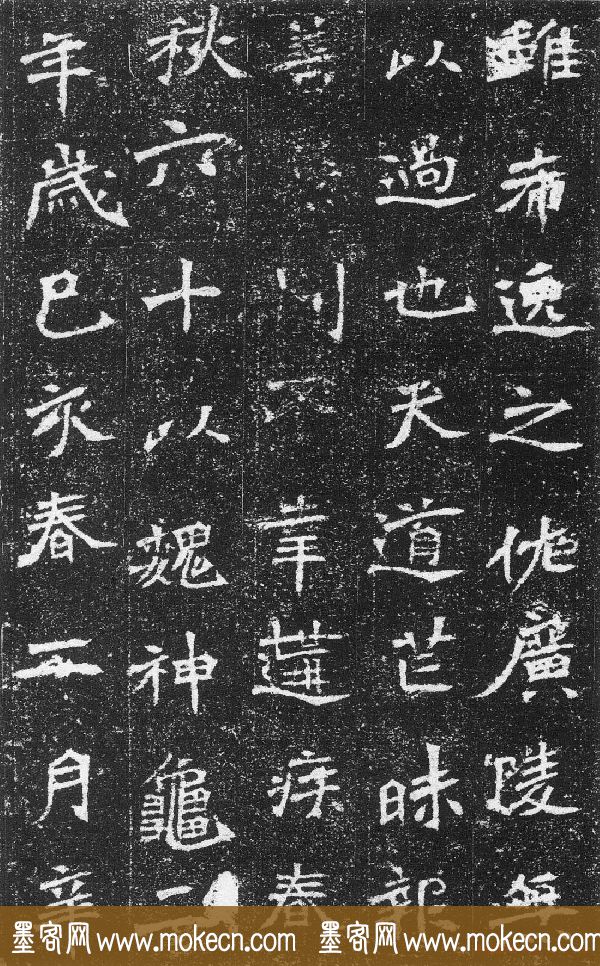 雖希逸之廣陵無
以過也天道芒昧報
善不幸遘疾春
秋六十以魏神龜二
年歲巳亥春二月辛
墨客网 www.mokecn.com 墨客网 www.mokecn.com